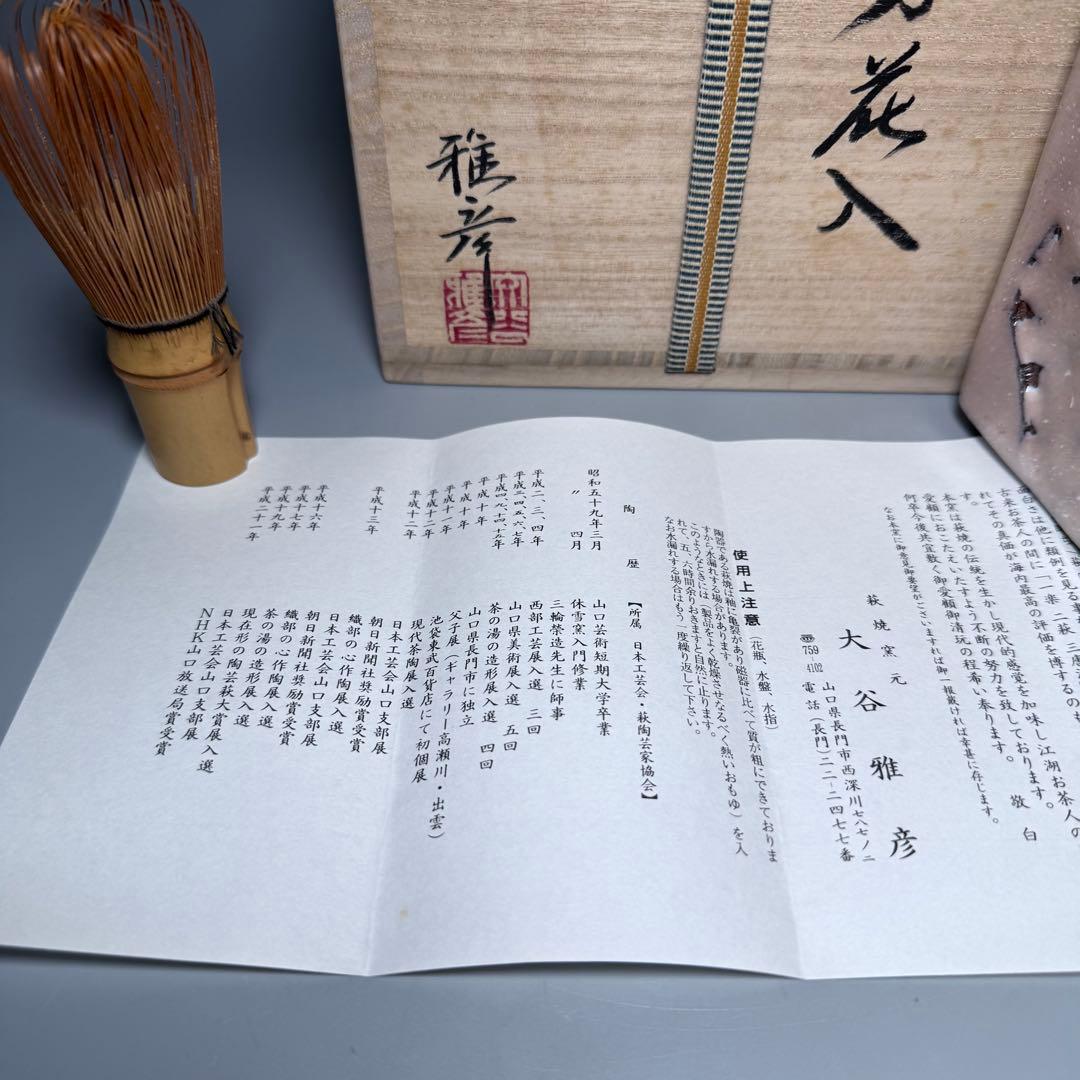 花入
雅彦
面白さは他に類例を見る事
古来お茶人の間に「一楽 二萩 三唐
れてその真価が海内最高の評価を博するのも
す。
本窯は萩焼の伝統を生かし現代的感覚を加味し江湖お茶人の
愛顧におこたえいたすよう不断の努力を致しております。
何卒今後共宜敷く御受顧御清玩の程希い奉ります。 敬白
なお本窯に御意見御要望がございますれば御一報厳ければ幸甚に存じます。
萩焼窯元
大谷雅彦
〠759 4102 山口県長門市西深川七八七ノ二
電話(長門)二二−二四七七番
使用上注意 (花瓶、水盤、水指)
陶器である萩焼は釉に亀裂があり磁器に比べて質が粗にできておりま
すから水漏れする場合があります。
このようなときには(製品をよく乾燥させなるべく熱いおもゆ)を入
れて、五、六時間余りおきますと自然に止ります。
なお水漏れする場合はもう一度繰り返して下さい。
陶歴 【所属 日本工芸会・萩陶芸家協会】
昭和五十九年三月 山口芸術短期大学卒業
〃 四月 休雪窯入門修業
三輪榮造先生に師事
平成二、三、四年 西部工芸展入選 三回
平成三、四、五、六、七年 山口県美術展入選 五回
平成四、九、十四、十五年 茶の湯の造形展入選 四回
平成十年 山口県長門市に独立
平成十年 父子展(ギャラリー高瀬川・出雲)
平成十一年 池袋東武百貨店にて初個展
平成十二年 現代茶陶展入選
平成十二年 日本工芸会山口支部展
朝日新聞社奨励賞受賞
平成十三年 織部の心作陶展入選
日本工芸会山口支部展
朝日新聞社奨励賞受賞
平成十六年 織部の心作陶展入選
平成十七年 茶の湯の造形展入選
平成十九年 現在形の陶芸萩大賞展入選
平成二十一年 日本工芸会山口支部展
NHK山口放送局賞受賞